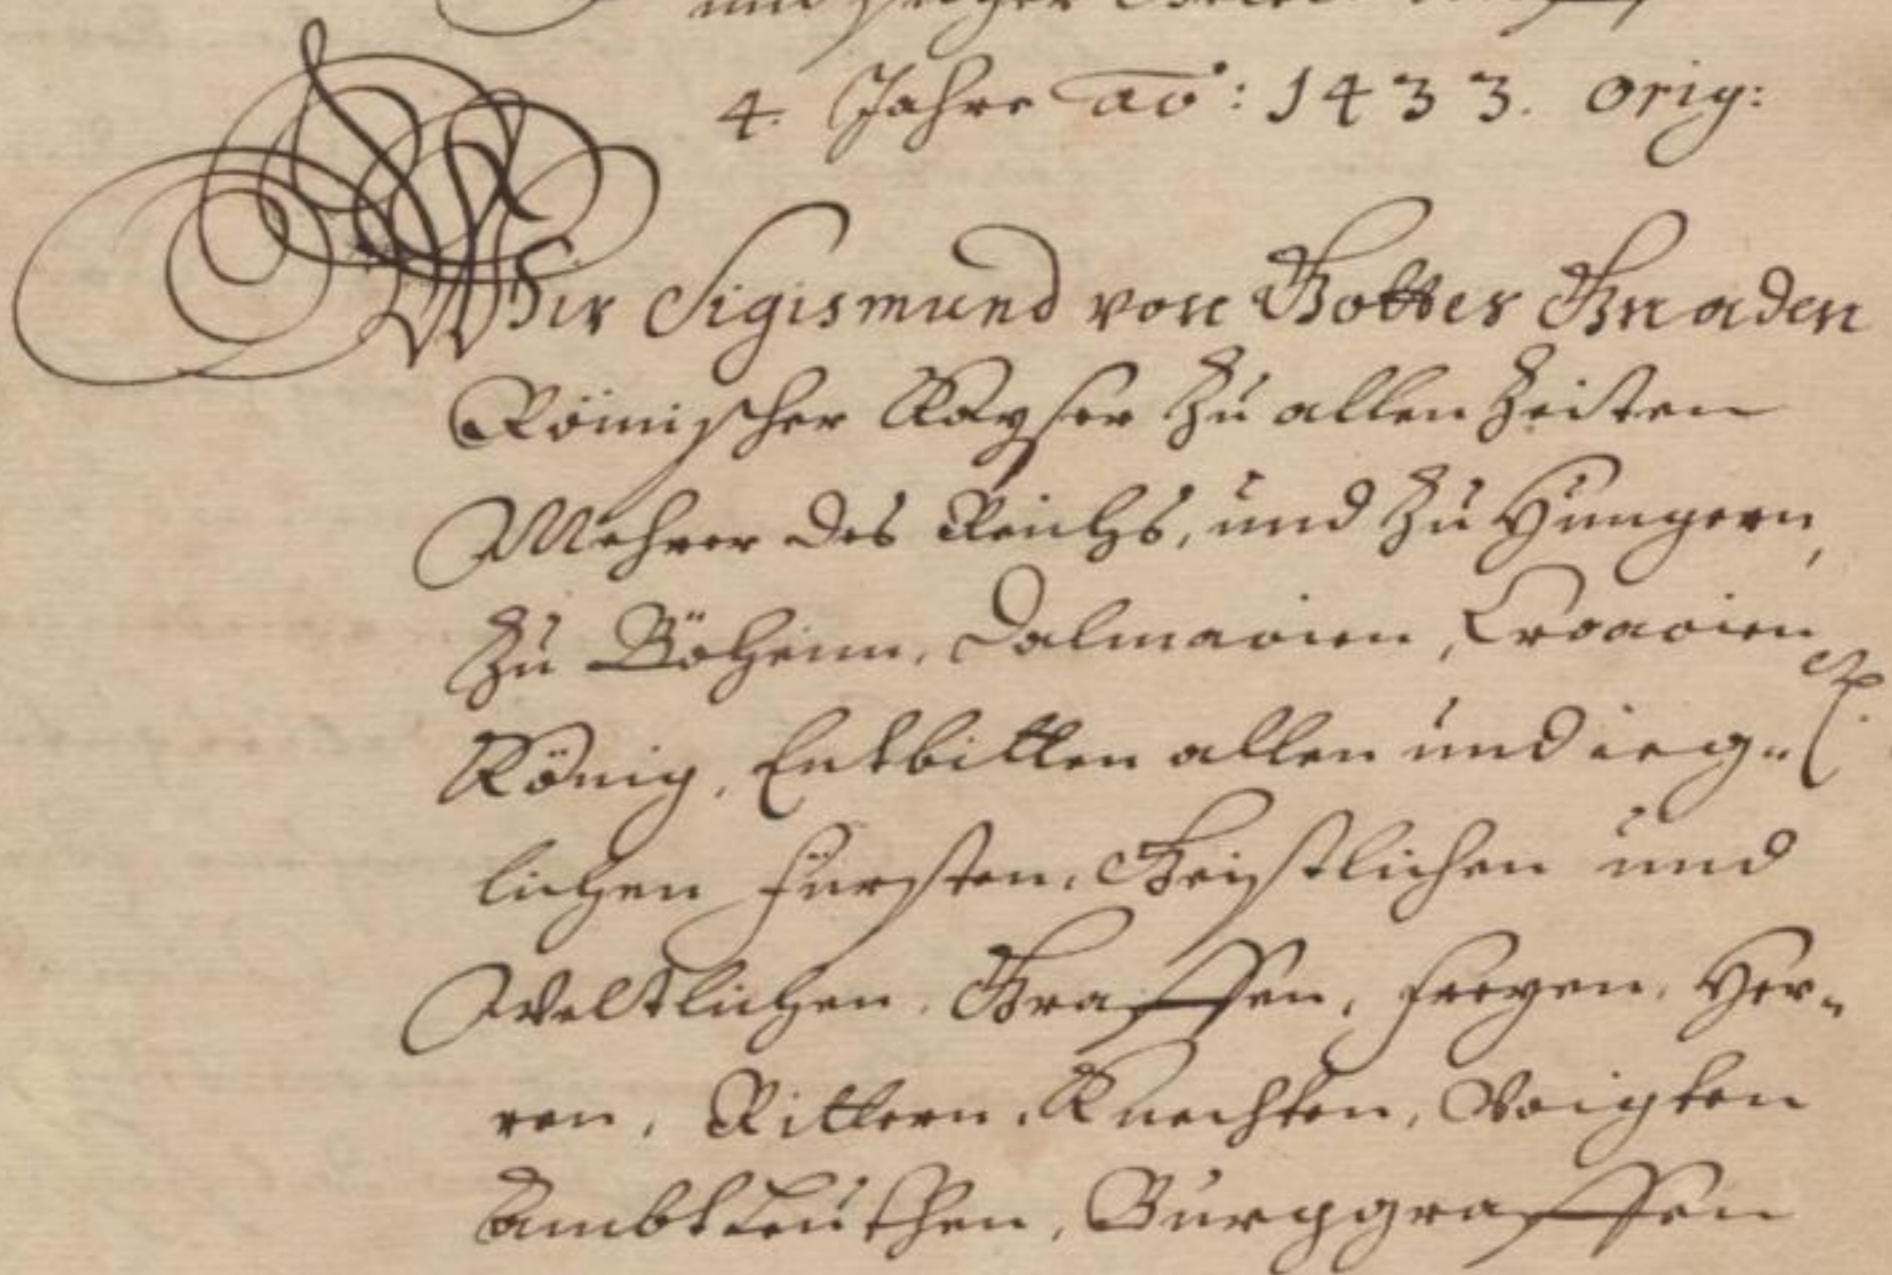 und
4. Jahre aō: 1433. Orig:
Wir Sigismund von Gottes Gnaden
Römischer Kayser zu allen Zeiten
Mehrer des Reichs, und zu Hungern,
zu Böheim, Dalmatien, Croatien
König, Entbitten allen und ieg-
lichen Fürsten, Geistlichen und
Weltlichen, Graffen, Freyen, Her-
ren, Rittern, Knechten, Voigten
Ambtleuthen, Burggraffen